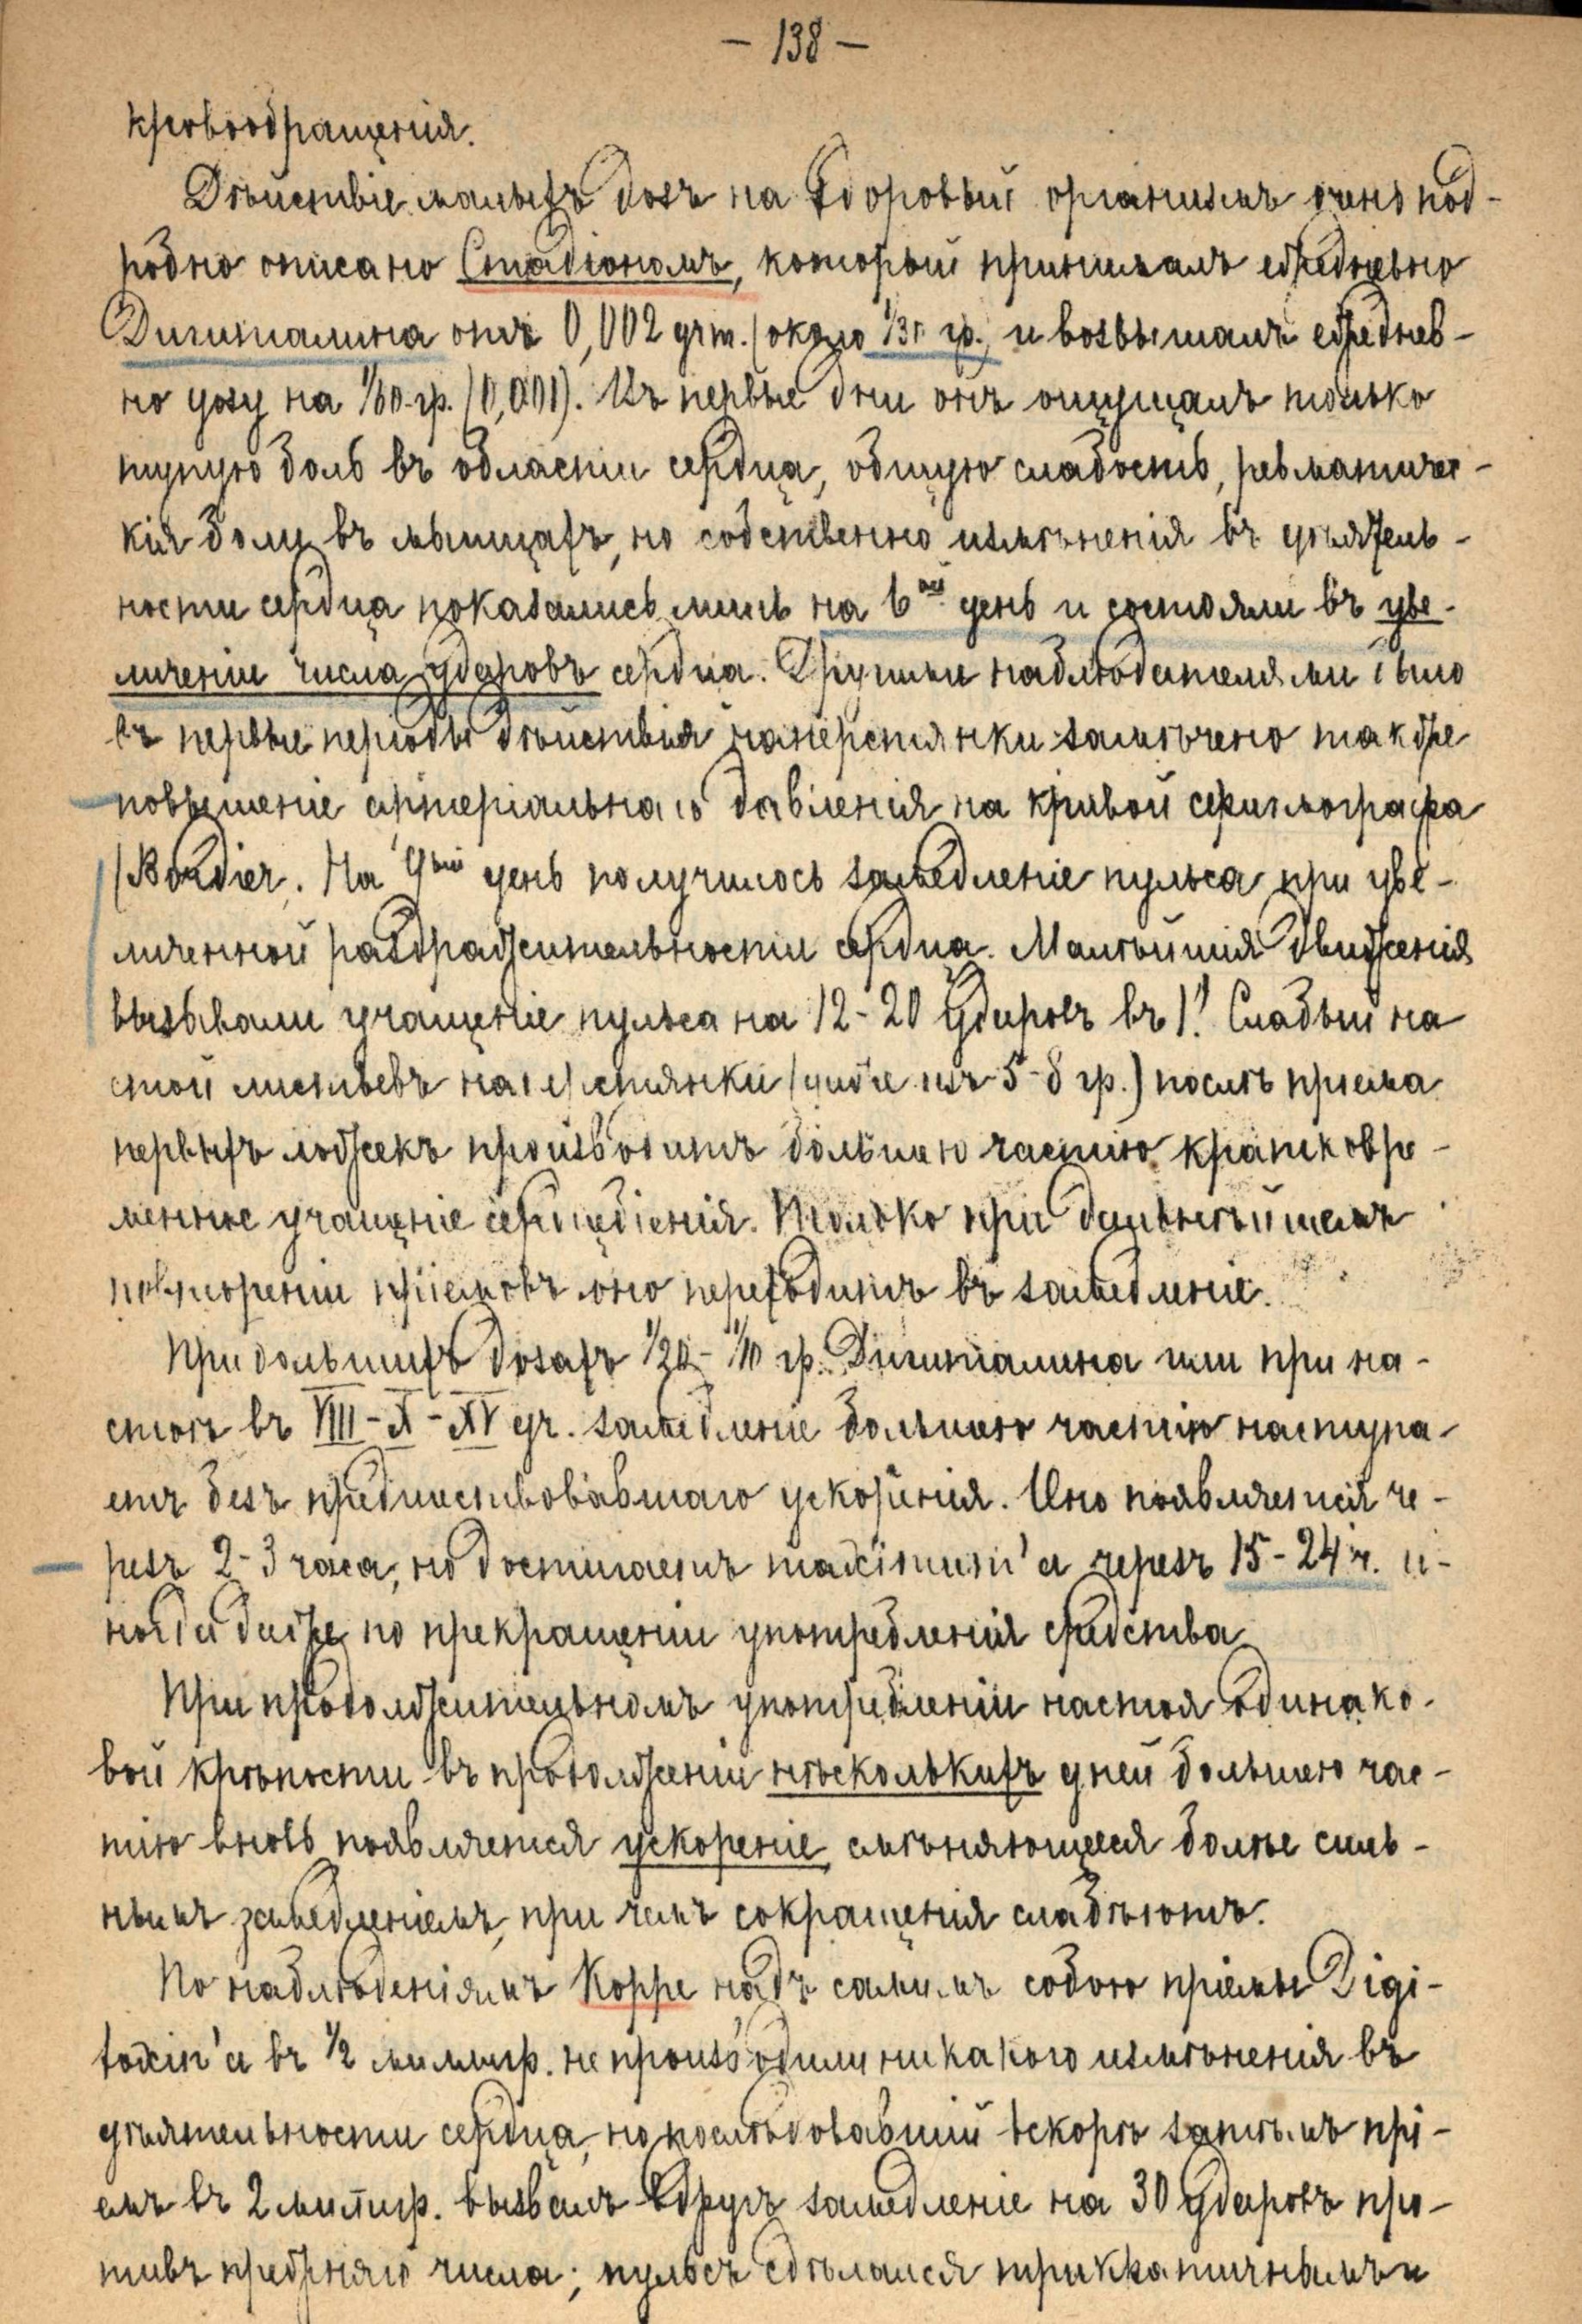 — 138 —
кровообращенія.
Дѣйствіе малыхъ дозъ на здоровый организмъ очень под-
робно описано Стадіономъ, который принималъ ежедневно
Дигиталина отъ 0,002 grm. (около 1/30 гр., и возвышалъ ежеднев-
но дозу на 1/60 гр. (0,001). Въ первые дни онъ ощущалъ только
тупую боль въ области сердца, общую слабость, ревматичес-
кія боли въ мышцахъ, но собственно измѣненія въ дѣятель-
ности сердца показались лишь на 6ой день и состояли въ уве-
личеніи числа ударовъ сердца. Другими наблюдателями было
въ первые періоды дѣйствія наперстянки замѣчено также
повышеніе артеріальнаго давленія на кривой сфигмографа
(Bordier. На 9ый день получилось замедленіе пульса при уве-
личенной раздражительности сердца. Малѣйшія движенія
вызывали учащеніе пульса на 12-20 ударовъ въ 1'. Слабый на
стой листьевъ наперстянки (infus. изъ 5-8 гр.) послѣ пріема
первыхъ ложекъ производитъ большею частію кратковре-
менное учащеніе сердцебіенія. Только при дальнѣйшемъ
повтореніи пріемовъ оно переходитъ въ замедленіе.
При большихъ дозахъ 1/20 - 1/10 гр. Дигиталина или при на-
стоѣ въ VIII - X - XV gr. замедленіе большею частію наступа-
етъ безъ предшествовавшаго ускоренія. Оно появляется че-
резъ 2-3 часа, но достигаетъ maximum'а черезъ 15-24 ч. и-
ногда даже по прекращеніи употребленія средства
При продолжительномъ употребленіи настоя одинако-
вой крѣпости въ продолженіи нѣсколькихъ дней большею час-
тію вновь появляется ускореніе, смѣняющееся болѣе силь-
нымъ замедленіемъ, при чемъ сокращенія слабѣютъ.
По наблюденіямъ Koppe надъ самимъ собою пріемы Digi-
toxin'а въ 1/2 миллигр. не производили никакого измѣненія въ
дѣятельности сердца, но послѣдовавшій вскорѣ затѣмъ прі-
емъ въ 2 миллигр. вызвалъ вдругъ замедленіе на 30 ударовъ про-
тивъ прежняго числа; пульсъ сдѣлался трикротичнымъ и